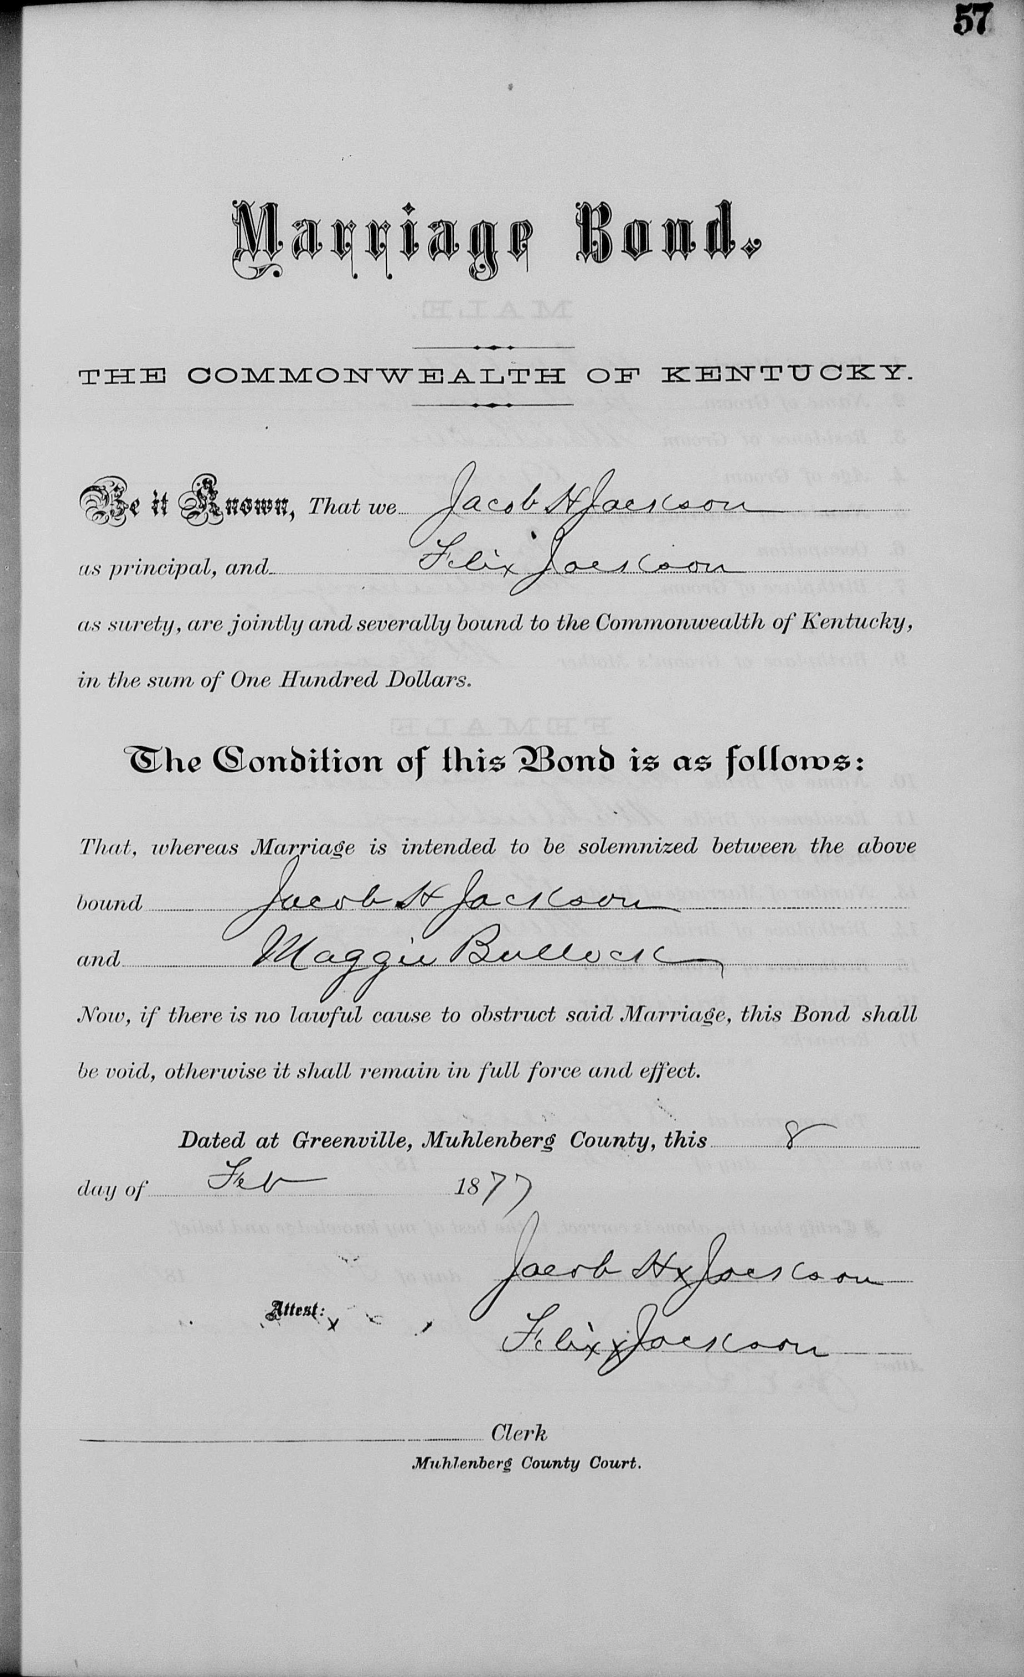 57
Marriage Bond.
THE COMMONWEALTH OF KENTUCKY.
Be it Known, That we Jacob H Jackson
as principal, and Felix Jackson
as surety, are jointly and severally bound to the Commonwealth of Kentucky,
in the sum of One Hundred Dollars.
The Condition of this Bond is as follows:
That, whereas Marriage is intended to be solemnized between the above
bound Jacob H Jackson
and Maggie Bullock
Now, if there is no lawful cause to obstruct said Marriage, this Bond shall
be void, otherwise it shall remain in full force and effect.
Dated at Greenville, Muhlenberg County, this 8
day of Feb 1877
Jacob H x Jackson
Attest:
Felix x Jackson
Clerk
Muhlenberg County Court.